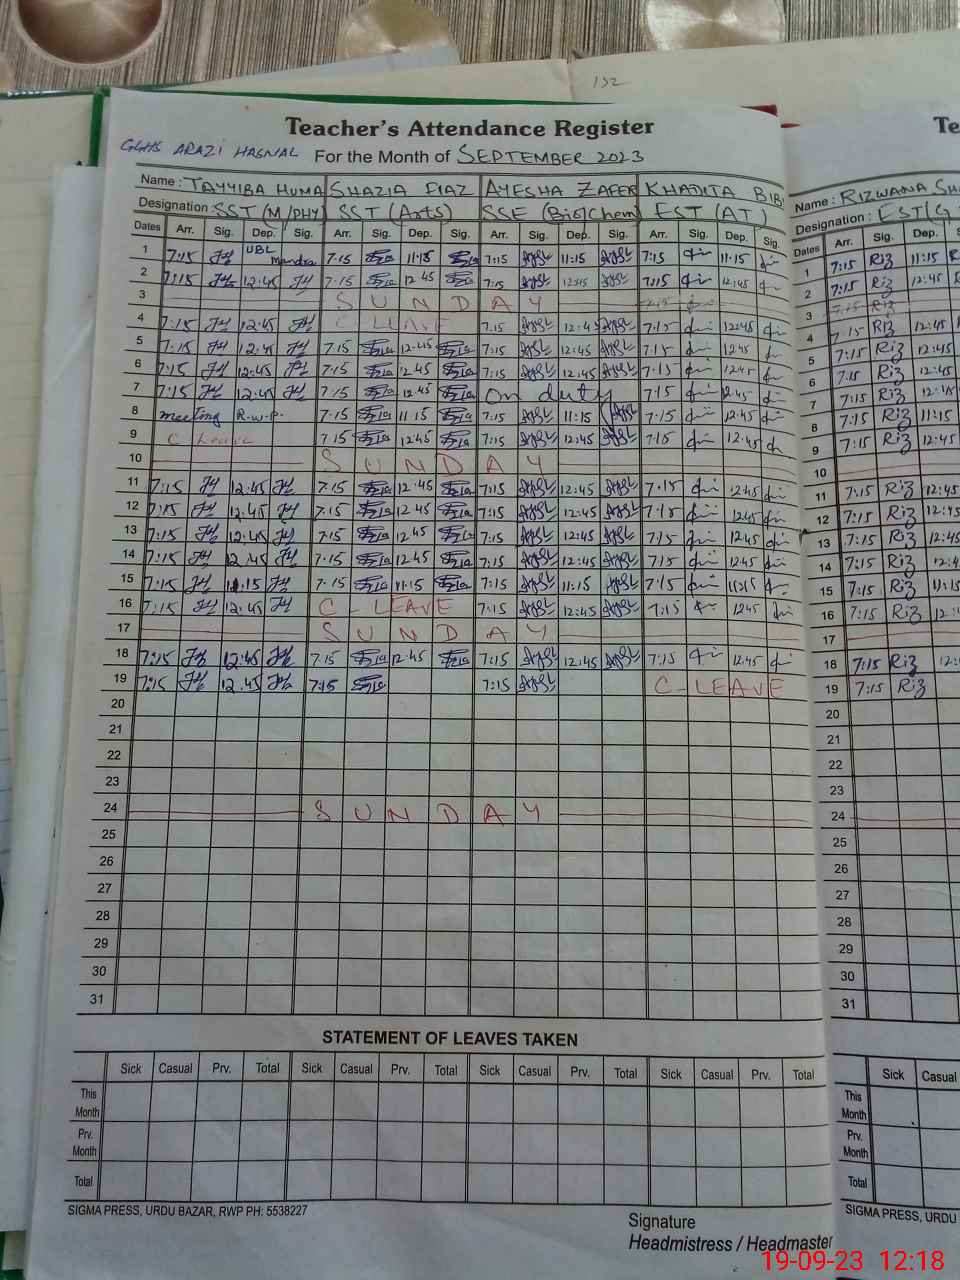 132
Teacher's Attendance Register
GGHS ARAZI HASNAL For the Month of SEPTEMBER 2023
Name : TAYYIBA HUMA SHAZIA FIAZ AYESHA ZAFER KHADITA BIB
Designation : SST (M/PHY) SST (Arts) SSE (Bio|Chem) EST (AT)
Dates Arr. Sig. Dep. Sig. Arr. Sig. Dep. Sig. Arr. Sig. Dep. Sig. Arr. Sig. Dep. Sig.
1 7:15 UBL Mandra 7:15 11:15 7:15 11:15 7:15 11:15
2 7:15 12:45 7:15 12:45 7:15 12:45 7:15 12:45
3 SUNDAY 7:15
4 7:15 12:45 C-LEAVE 7:15 12:45 7:15 12:45
5 7:15 12:45 7:15 12:45 7:15 12:45 7:15 12:45
6 7:15 12:45 7:15 12:45 7:15 12:45 7:15 12:45
7 7:15 12:45 7:15 12:45 On duty 7:15 12:45
8 meeting R.w.p. 7:15 11:15 7:15 11:15 7:15 12:45
9 C Leave 7:15 12:45 7:15 12:45 7:15 12:45
10 SUNDAY
11 7:15 12:45 7:15 12:45 7:15 12:45 7:15 12:45
12 7:15 12:45 7:15 12:45 7:15 12:45 7:15 12:45
13 7:15 12:45 7:15 12:45 7:15 12:45 7:15 12:45
14 7:15 12:45 7:15 12:45 7:15 12:45 7:15 12:45
15 7:15 11:15 7:15 11:15 7:15 11:15 7:15 11:15
16 7:15 12:45 C-LEAVE 7:15 12:45 7:15 12:45
17 SUNDAY
18 7:15 12:45 7:15 12:45 7:15 12:45 7:15 12:45
19 7:15 12:45 7:15 7:15 C-LEAVE
20
21
22
23
24 SUNDAY
25
26
27
28
29
30
31
STATEMENT OF LEAVES TAKEN
Sick Casual Prv. Total Sick Casual Prv. Total Sick Casual Prv. Total Sick Casual Prv. Total
This Month
Prv. Month
Total
SIGMA PRESS, URDU BAZAR, RWP PH: 5538227
Signature
Headmistress / Headmaster
Te
Name : RIZWANA SHA
Designation : EST(G
Dates Arr. Sig. Dep. S
1 7:15 Riz 11:15 R
2 7:15 Riz 12:45
3 7:15 Riz
4 7:15 Riz 12:45
5 7:15 Riz 12:45
6 7:15 Riz 12:45
7 7:15 Riz 12:45
8 7:15 Riz 11:15
9 7:15 Riz 12:45
10
11 7:15 Riz 12:45
12 7:15 Riz 12:45
13 7:15 Riz 12:45
14 7:15 Riz 12:4
15 7:15 Riz 11:15
16 7:15 Riz 12:
17
18 7:15 Riz 12:
19 7:15 Riz
20
21
22
23
24
25
26
27
28
29
30
31
Sick Casual
This Month
Prv. Month
Total
SIGMA PRESS, URDU
19-09-23 12:18